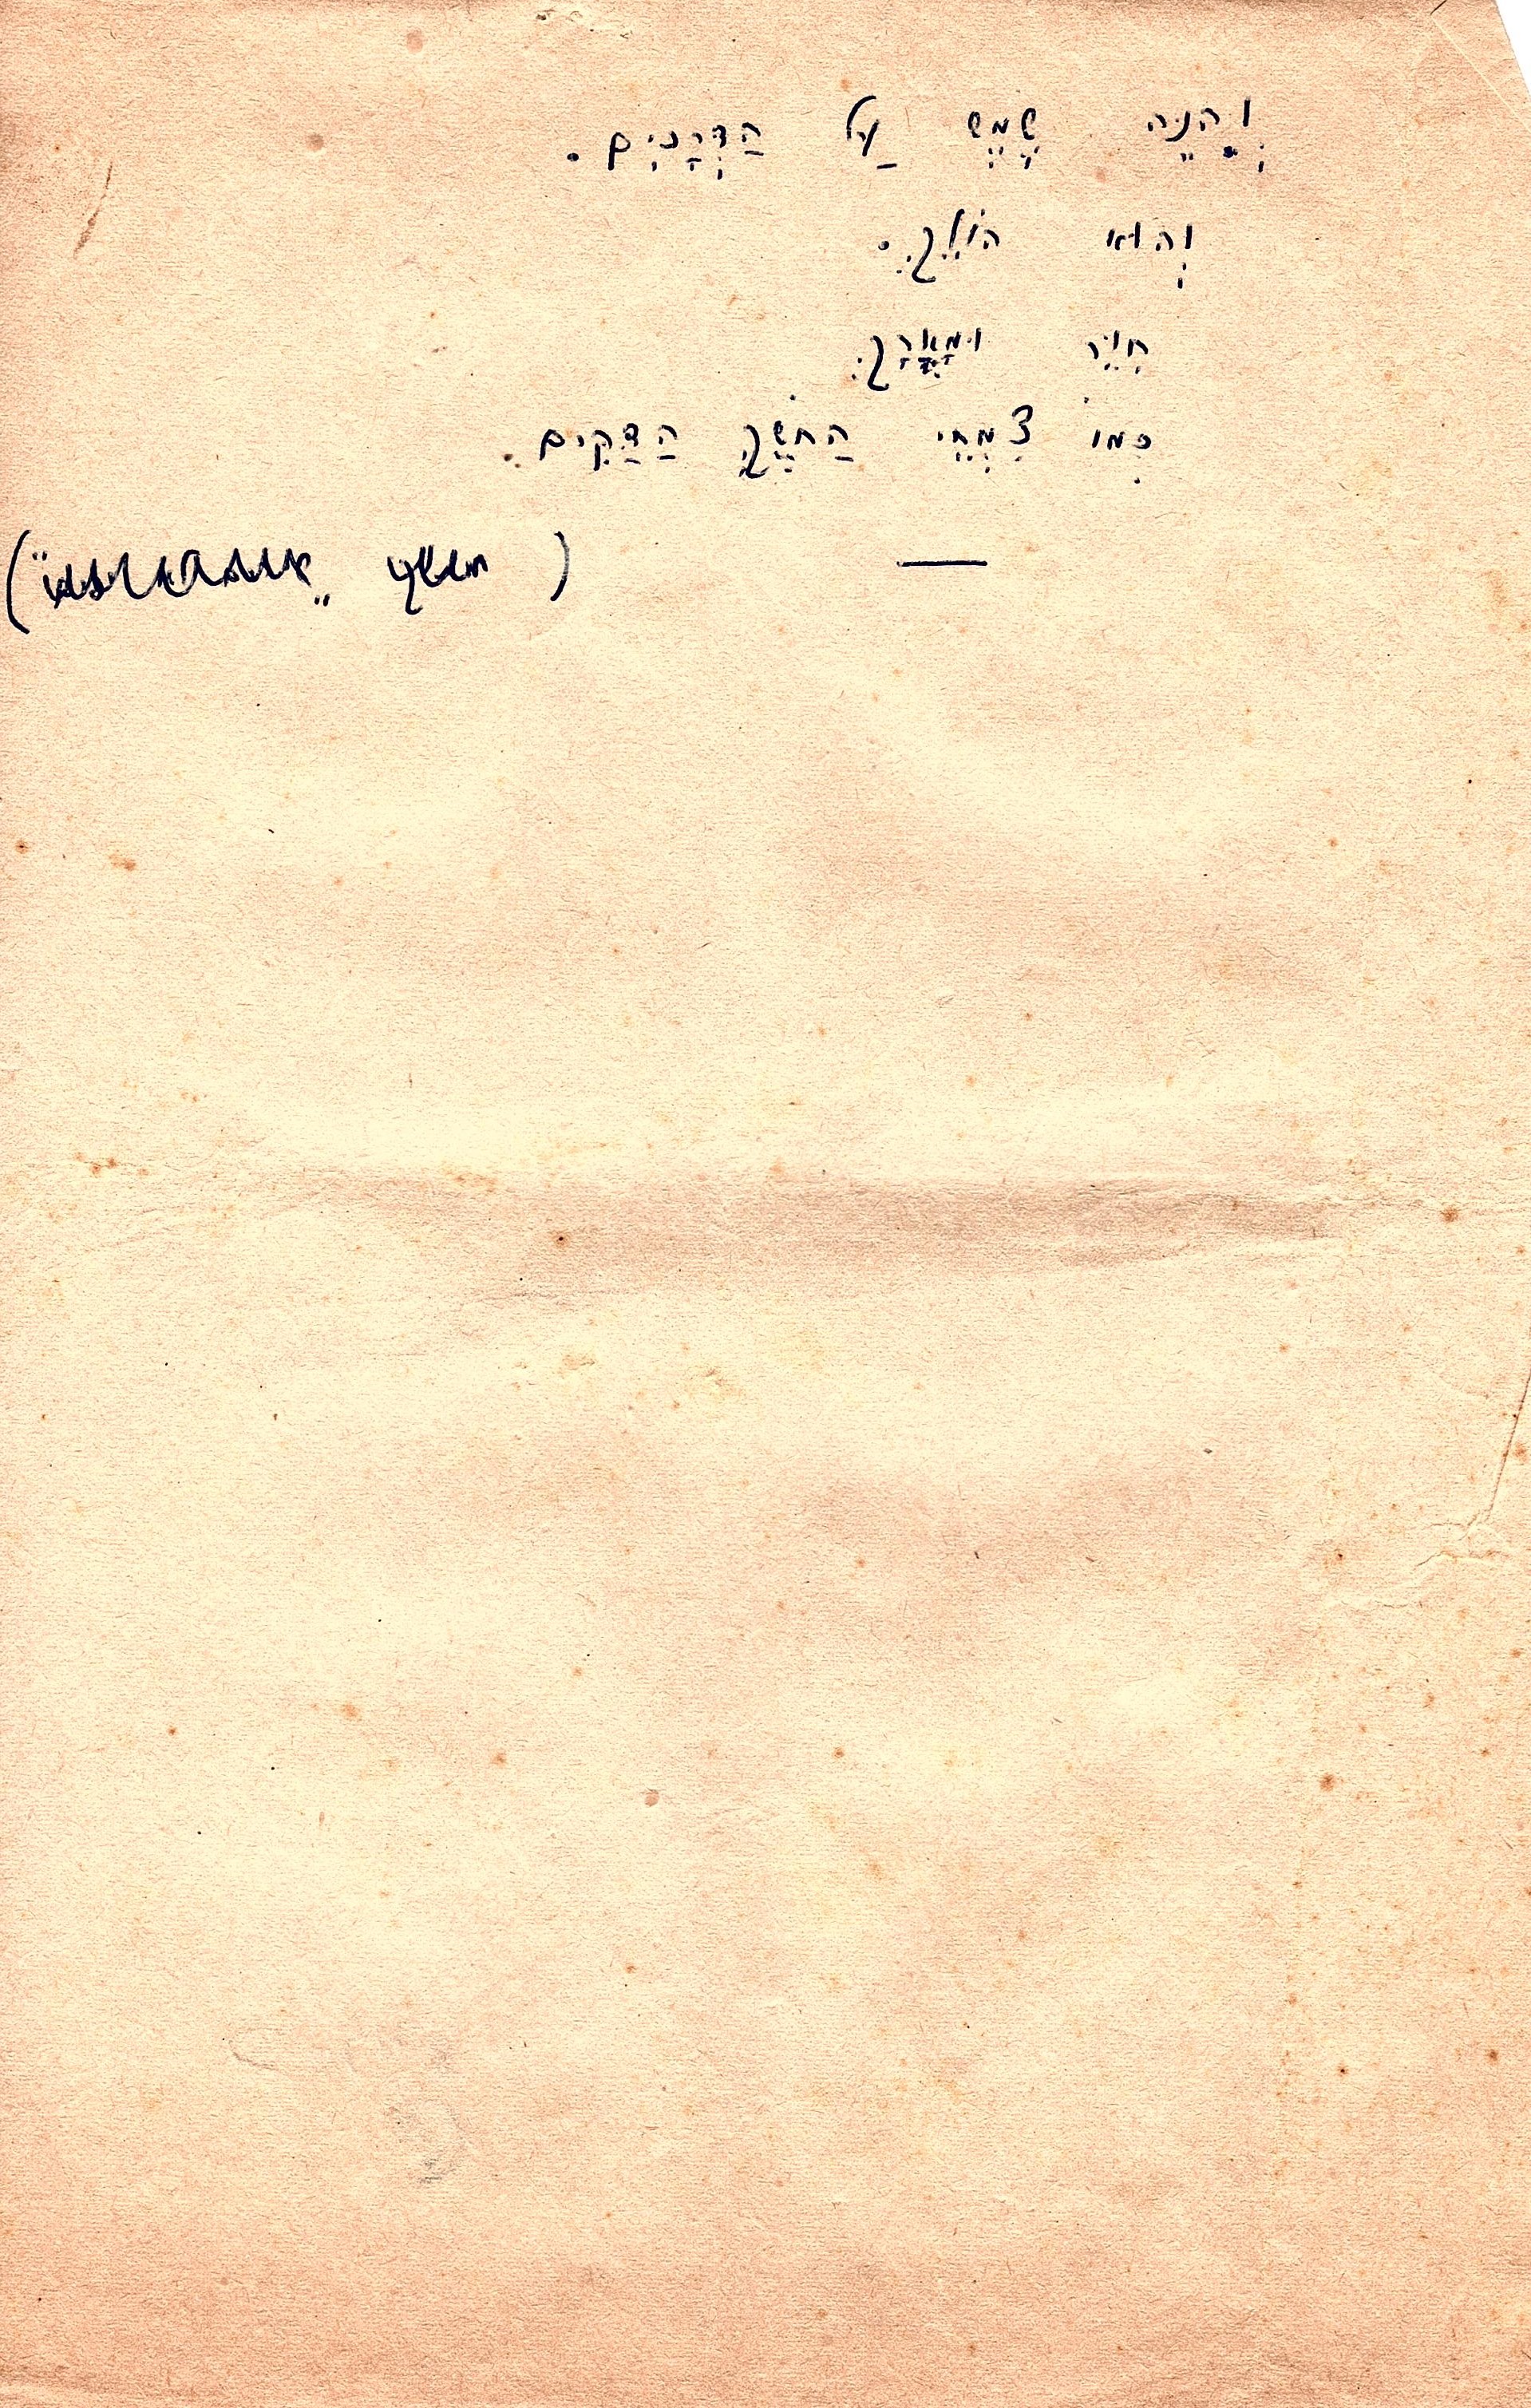 וְהִנֵּה שֶׁמֶשׁ עַל הַדְּרָכִים.
וְהוּא הוֹלֵךְ.
חִוֵּר וּמָאֳרָךְ
כְּמוֹ צִמְחֵי הַחֹשֶׁךְ הַדַּקִּים.
—